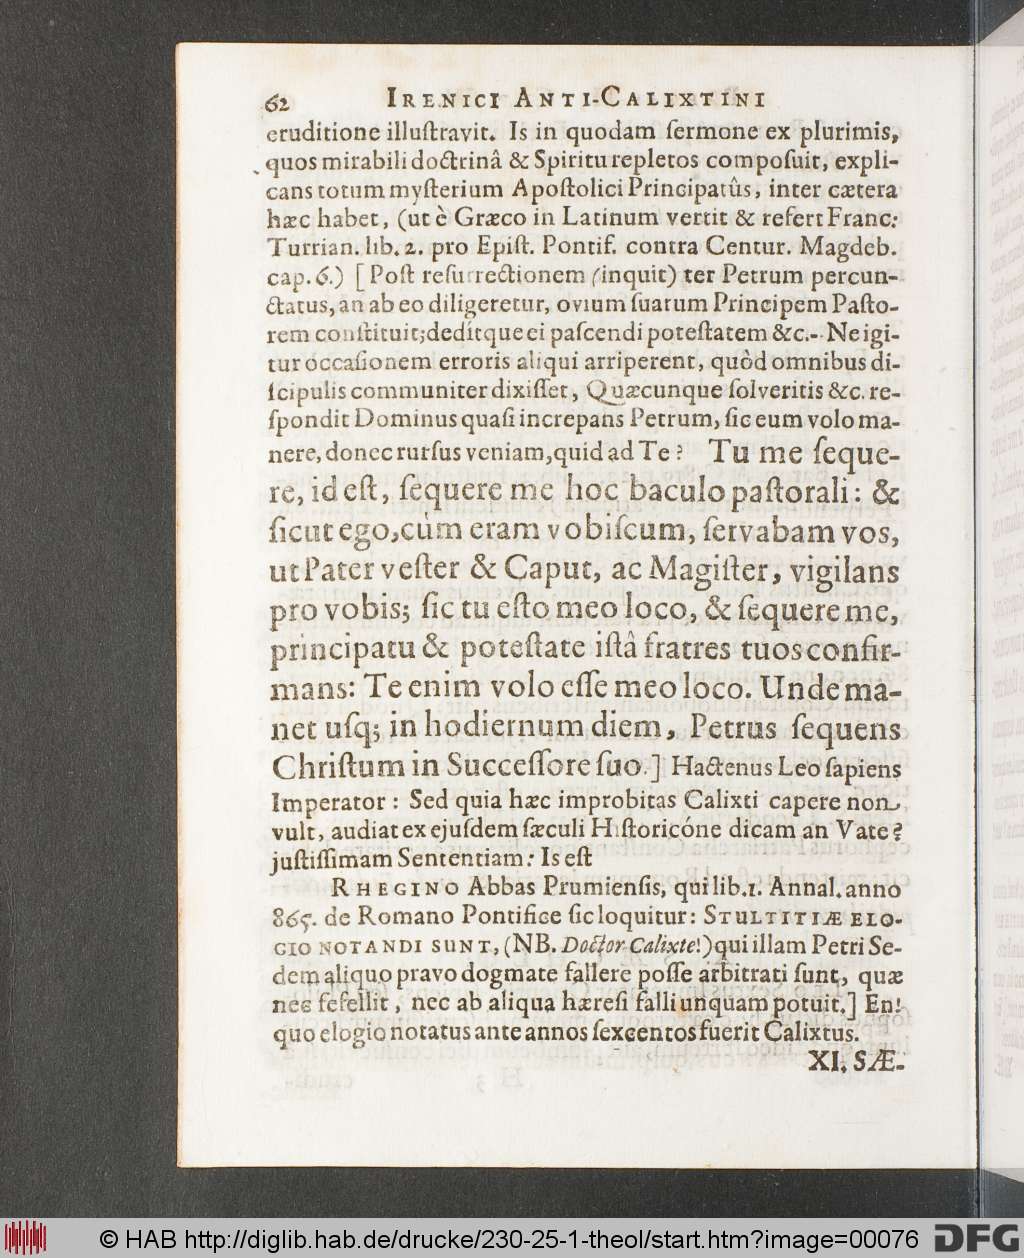 62 IRENICI ANTI-CALIXTINI
eruditione illuſtravit. Is in quodam ſermone ex plurimis,
quos mirabili doctrinâ & Spiritu repletos compoſuit, expli-
cans totum myſterium Apoſtolici Principatûs, inter cætera
hæc habet, (ut è Græco in Latinum vertit & refert Franc:
Turrian. lib. 2. pro Epiſt. Pontif. contra Centur. Magdeb.
cap. 6.) [Poſt reſurrectionem (inquit) ter Petrum percun-
ctatus, an ab eo diligeretur, ovium ſuarum Principem Paſto-
rem conſtituit; deditque ei paſcendi poteſtatem &c.-- Ne igi-
tur occaſionem erroris aliqui arriperent, quòd omnibus di-
ſcipulis communiter dixiſſet, Quæcunque ſolveritis &c. re-
ſpondit Dominus quaſi increpans Petrum, ſic eum volo ma-
nere, donec rurſus veniam, quid ad Te? Tu me ſeque-
re, id eſt, ſequere me hoc baculo paſtorali: &
ſicut ego, cùm eram vobiſcum, ſervabam vos,
ut Pater veſter & Caput, ac Magiſter, vigilans
pro vobis; ſic tu eſto meo loco, & ſequere me,
principatu & poteſtate iſtâ fratres tuos confir-
mans: Te enim volo eſſe meo loco. Unde ma-
net uſq; in hodiernum diem, Petrus ſequens
Chriſtum in Succeſſore ſuo.] Hactenus Leo ſapiens
Imperator: Sed quia hæc improbitas Calixti capere non
vult, audiat ex ejuſdem ſæculi Hiſtoricóne dicam an Vate?
juſtiſſimam Sententiam: Is eſt
RHEGINO Abbas Prumienſis, qui lib. 1. Annal. anno
865. de Romano Pontifice ſic loquitur: STULTITIÆ ELO-
GIO NOTANDI SUNT, (NB. Doctor Calixte!) qui illam Petri Se-
dem aliquo pravo dogmate fallere poſſe arbitrati ſunt, quæ
nec fefellit, nec ab aliqua hæreſi falli unquam potuit.] En!
quo elogio notatus ante annos ſexcentos fuerit Calixtus.
XI. SÆ-
© HAB http://diglib.hab.de/drucke/230-25-1-theol/start.htm?image=00076
DFG